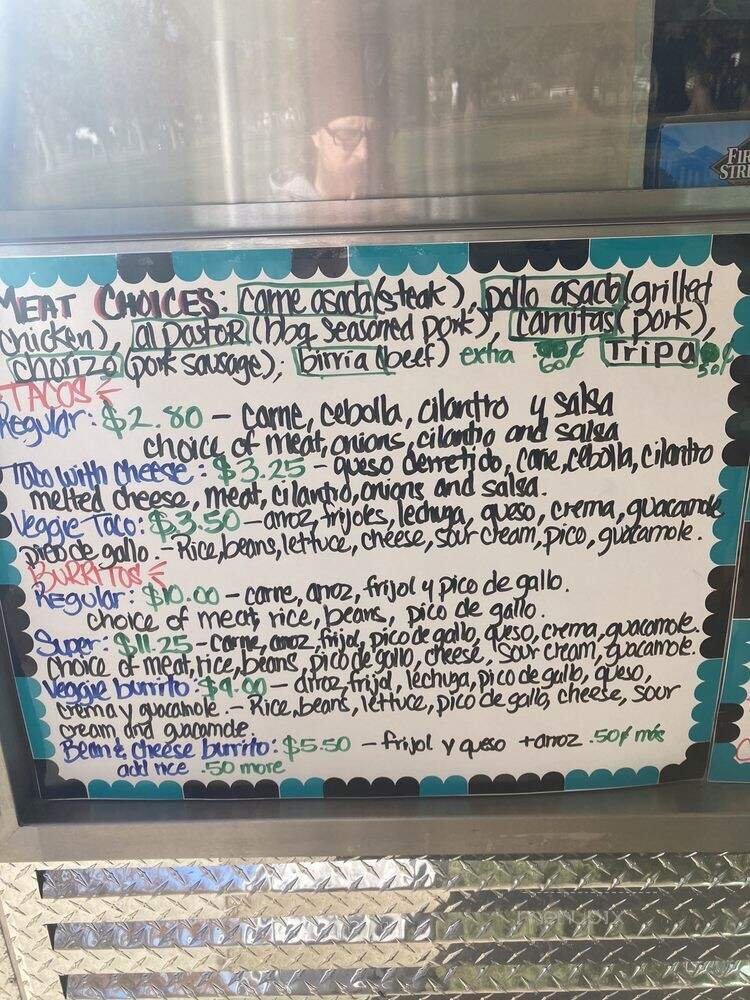 FI
STR
MEAT CHOICES: carne asada (steak), pollo asado (grilled
chicken), al pastor (bbq seasoned pork), carnitas (pork),
chorizo (pork sausage), birria (beef) extra 60¢ Tripa 50¢
TACOS
Regular: $2.80 - carne, cebolla, cilantro y salsa
choice of meat, onions, cilantro and salsa
Taco with cheese: $3.25 - queso derretido, carne, cebolla, cilantro
melted cheese, meat, cilantro, onions and salsa.
Veggie Taco: $3.50 - arroz, frijoles, lechuga, queso, crema, guacamole
pico de gallo. - Rice, beans, lettuce, cheese, sour cream, pico, guacamole.
BURRITOS
Regular: $10.00 - carne, arroz, frijol y pico de gallo.
choice of meat, rice, beans, pico de gallo.
Super: $11.25 - carne, arroz, frijol, pico de gallo, queso, crema, guacamole.
choice of meat, rice, beans, pico de gallo, cheese, sour cream, guacamole.
Veggie burrito: $9.00 - arroz, frijol, lechuga, pico de gallo, queso,
crema y guacamole. - Rice, beans, lettuce, pico de gallo, cheese, sour
cream and guacamole.
Bean & cheese burrito: $5.50 - frijol y queso + arroz .50¢ más
add rice .50 more